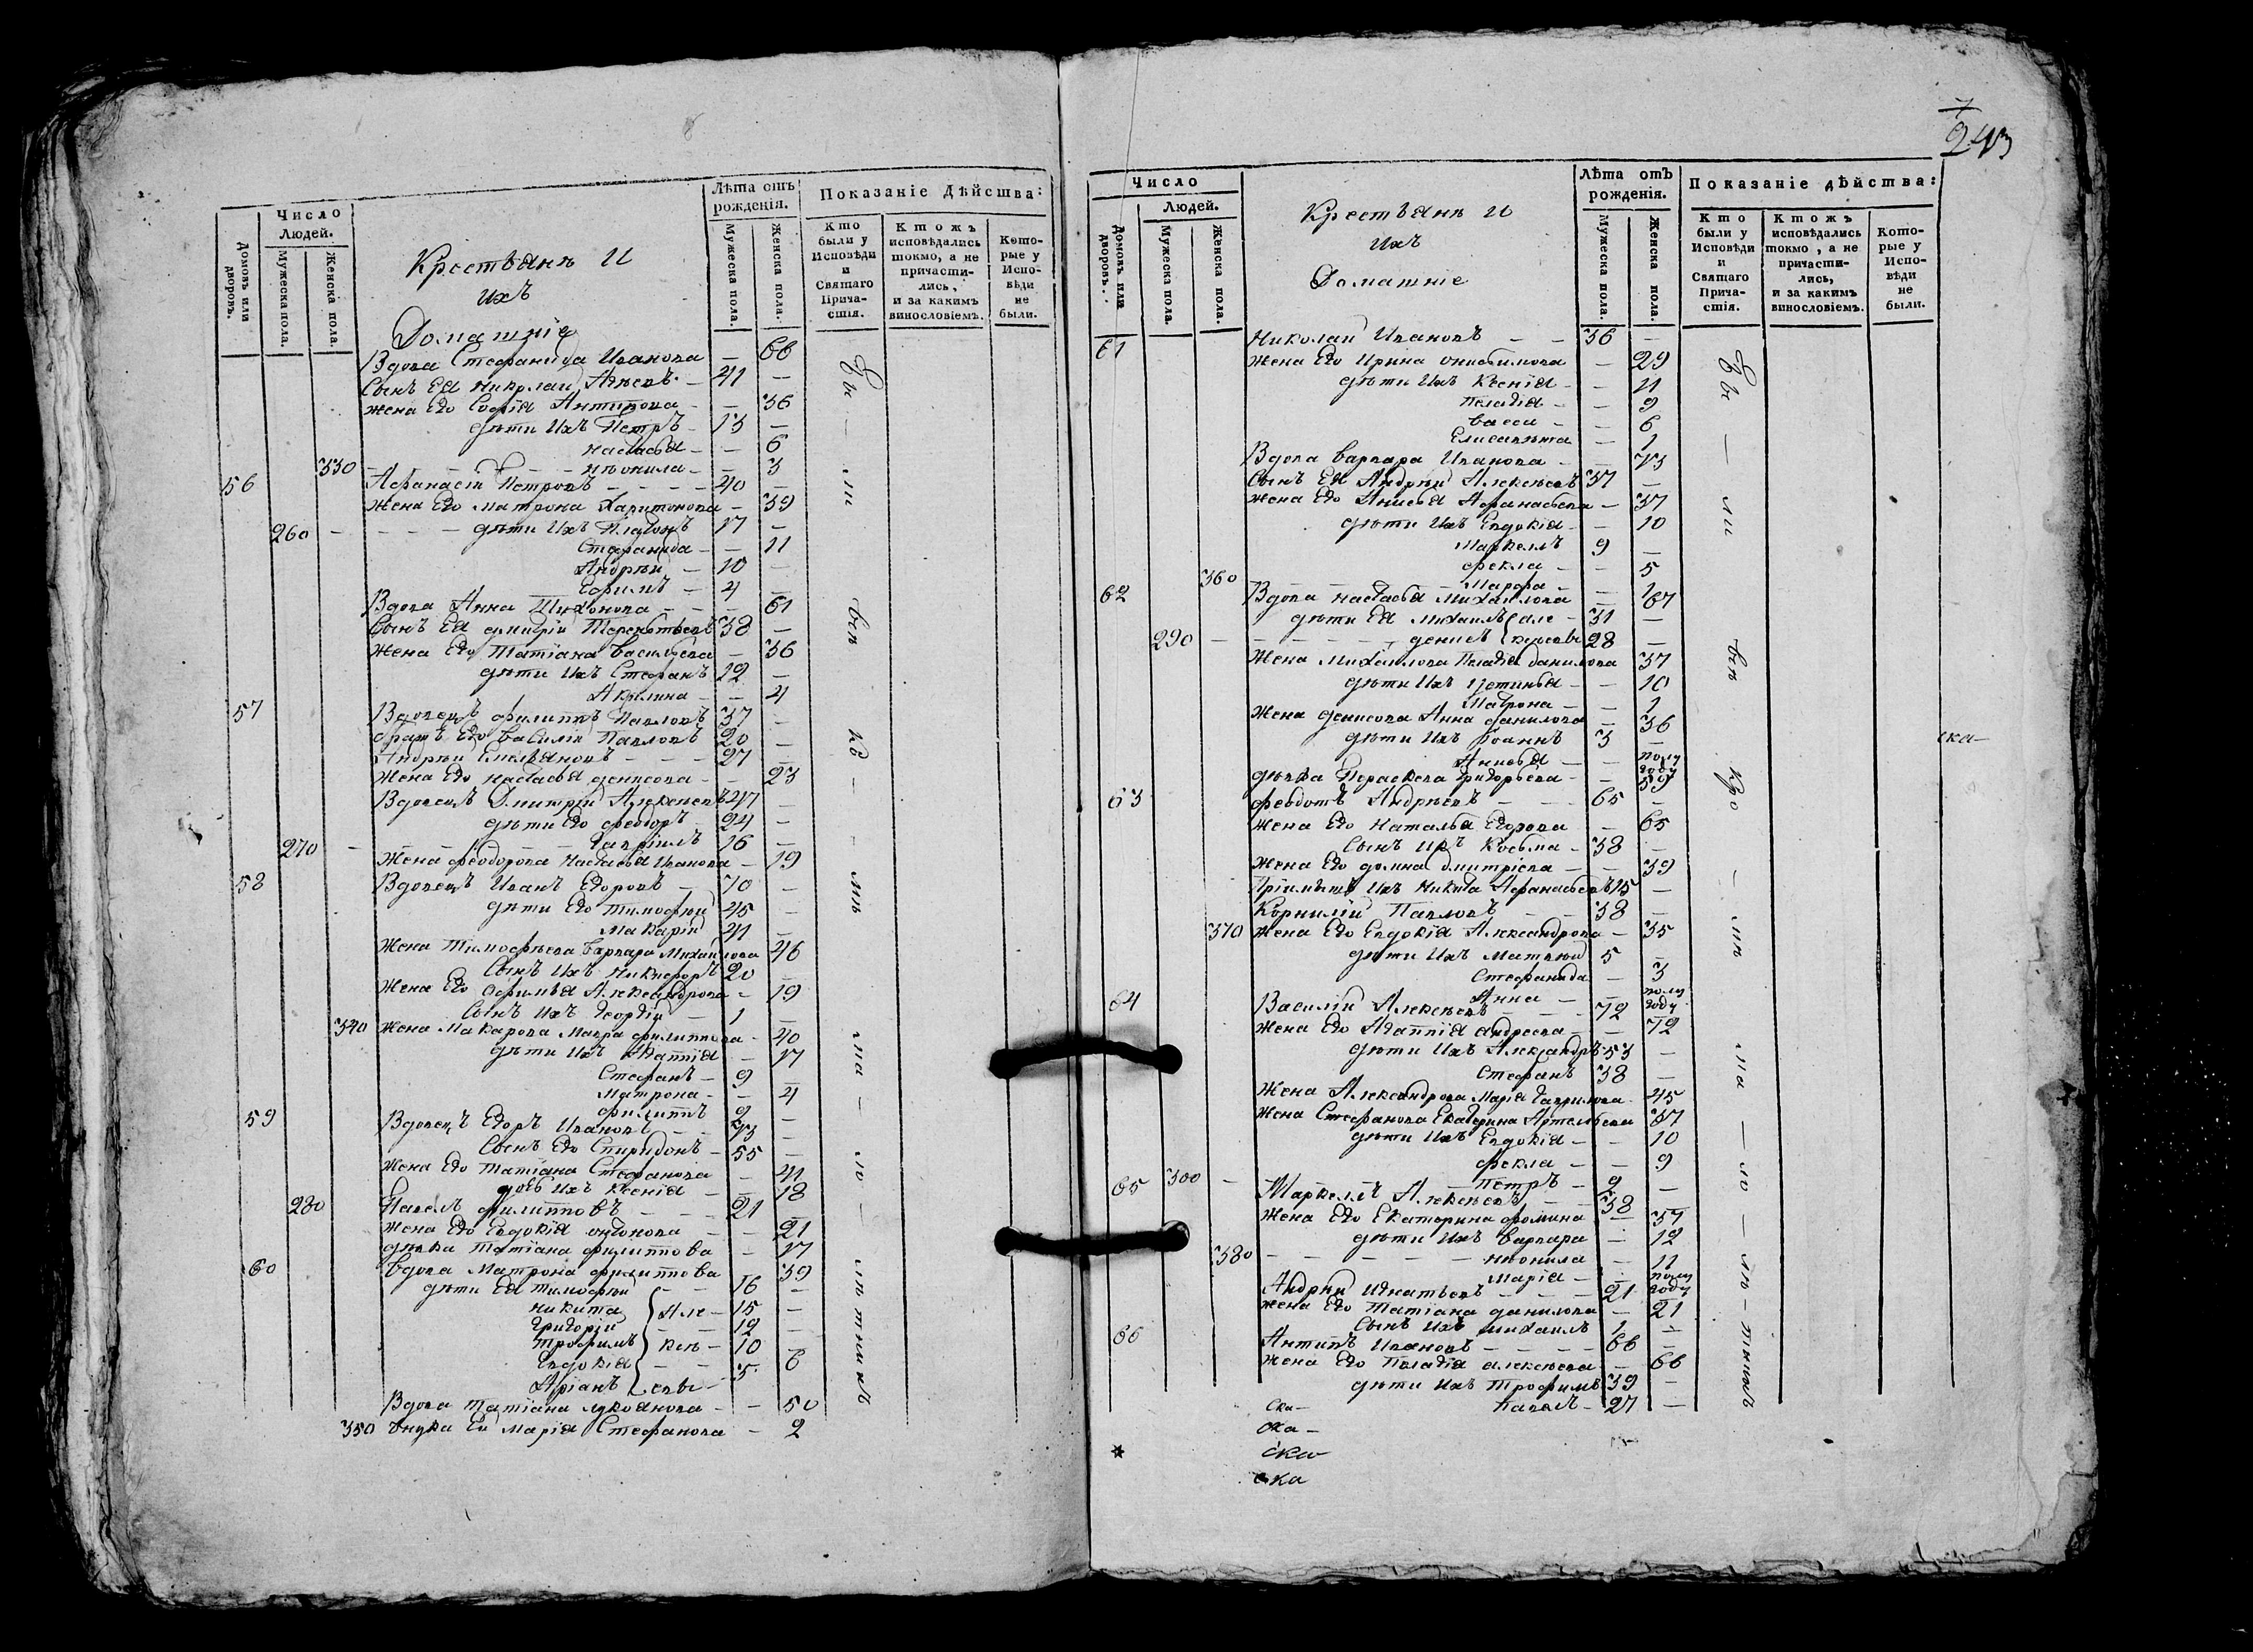 Число
Людей.
Домовъ или дворовъ.
Мужеска пола.
Женска пола.
Крестьянѣ И
ихъ
Домашнiе
Лѣта отъ рожденія.
Мужеска пола.
Женска пола.
Показаніе Дѣйства:
Кто были у Исповѣди и Святаго Причастія.
Ктожъ исповѣдались токмо, а не причастились, и за какимъ винословіемъ.
Которые у Исповѣди не были.
Вдова Стефанида Иванова — 66
Сынъ Ея Николай 41 —
жена Его Софія Антипова — 36
дѣти Ихъ Петръ 13 —
Настасья — 6
330 Неонила — 3
56 Афанасій Петровъ 40 —
Жена Его Матрона Харитонова — 39
260 дѣти Ихъ Платонъ 17 —
Стефанида — 11
Андрѣй 10 —
Ефимъ 4 —
Вдова Анна Тихонова — 61
Сынъ Ея Терентьевъ 38 —
Жена Его Татіана Васильева — 36
дѣти Ихъ Стефанъ 12 —
Акилина — 4
57 Вдовецъ Филиппъ Павловъ 37 —
братъ Его Василій Павловъ 20 —
Андрѣй Емельяновъ 27 —
Жена Его Настасья Денисова — 23
Вдовецъ Дмитрій Алексѣевъ 47 —
дѣти Его Феодоръ 24 —
270 Гавріилъ 16 —
Жена Феодорова Настасья Иванова — 19
58 Вдовецъ Иванъ Егоровъ 70 —
дѣти Его Тимофѣй 45 —
Макарій 41 —
Жена Тимофѣева Варвара Михайлова 46
Сынъ Ихъ Никифоръ 20 —
Жена Его Афимья Александрова — 19
Сынъ Ихъ Георгій 1 —
340 Жена Макарова Мавра Филиппова — 40
дѣти Ихъ Агаппія — 17
Стефанъ 9 —
Матрона — 4
Филиппъ 2 —
59 Вдовецъ Егоръ Ивановъ 73 —
Сынъ Его Спиридонъ 55 —
Жена Его Татіана Стефанова — 41
дочь Ихъ Ксенія — 18
280 Павелъ Филипповъ 21 —
Жена Его Евдокія — 21
дѣвка Татіана Филиппова — 17
60 Вдова Матрона Филиппова — 39
дѣти Ея Тимофѣй 16 —
Никита 15 —
Григорій 12 —
Трофимъ 10 —
Евдокія — 6
Аріанъ 5
Але
ксѣ
евы
Вдова Татіана Лукоянова — 50
350 Внука Ея Марія Стефанова — 2
243
Число
Людей.
Домовъ или дворовъ.
Мужеска пола.
Женска пола.
Крестьянѣ И
Ихъ
Домашніе
Лѣта отъ рожденія.
Мужеска пола.
Женска пола.
Показаніе дѣйства:
Кто были у Исповѣди и Святаго Причастія.
Ктожъ исповѣдались токмо, а не причастились, и за какимъ винословіемъ.
Которые у Исповѣди не были.
61 Николай Ивановъ 36 —
Жена Его Ирина Онисимова — 29
дѣти Ихъ Ксенія — 11
Пелагія — 9
Васса — 6
Елисавета — 1
Вдова Варвара Иванова — 73
Сынъ Ея Андрѣй Алексѣевъ 37 —
Жена Его Анисья Афанасьева — 37
дѣти Ихъ Евдокія — 10
Маркеллъ 9 —
Фекла — 5
360 Марфа — 1
62 Вдова Настасья Михайлова — 67
дѣти Ея Михаилъ Але 31 —
290 Денисъ ксѣевы 28 —
Жена Михайлова Пелагія Данилова 37
дѣти Ихъ Устинья — 10
Матрона — 1
Жена Денисова Анна Данилова — 36
дѣти Ихъ Іоаннъ 3 —
Анисья — полугоду
дѣвка Параскева Григорьева — 59
63 Феодотъ Андрѣевъ 65 —
Жена Его Наталья Егорова — 65
Сынъ Ихъ Косьма 38 —
Жена Его Домна Дмитріева — 39
Пріимышъ Ихъ Никита Афанасьевъ 15 —
Корнилій Павловъ 38 —
370 Жена Его Евдокія Александрова — 35
дѣти Ихъ Матвѣй 5 —
Стефанида — 3
Анна — полугоду
64 Василій Алексѣевъ 72 —
Жена Его Агаппія Андреева — 72
дѣти Ихъ Александръ 53 —
Стефанъ 38 —
Жена Александрова Марія Гаврилова 45
Жена Стефанова Екатерина Артемьева 37
дѣти Ихъ Евдокія — 10
Фекла — 9
300 Петръ 2 —
65 Маркеллъ Алексѣевъ 38 —
Жена Его Екатерина Фомина — 37
дѣти Ихъ Варвара — 12
380 Неонила — 11
Марія — полугоду
Андрѣй Игнатьевъ 21 —
Жена Его Татіана Данилова — 21
Сынъ Ихъ Михаилъ 1 —
66 Антипъ Ивановъ 66 —
Жена Его Пелагія Алексѣева — 66
дѣти Ихъ Трофимъ 39 —
Павелъ 27 —
ска—
ска—
ска
ска
ска—